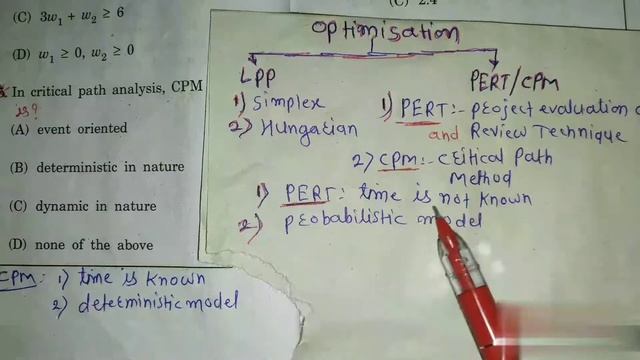 (C) 3w₁ + w₂ ≥ 6
(D) w₁ ≥ 0, w₂ ≥ 0
In critical path analysis, CPM
is?
(A) event oriented
(B) deterministic in nature
(C) dynamic in nature
(D) none of the above
CPM: 1) time is known
2) deterministic model
(C) 2.4
optimisation
LPP
1) Simplex
2) Hungarian
PERT/CPM
1) PERT:- project evaluation
and Review Technique
2) CPM:- critical Path
Method
1) PERT: time is not known
2) probabilistic model